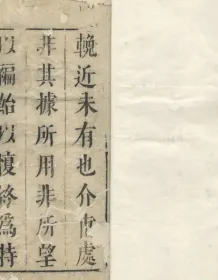 輓近未有也介胄處
非其據所用非所望
以編始以復終爲持